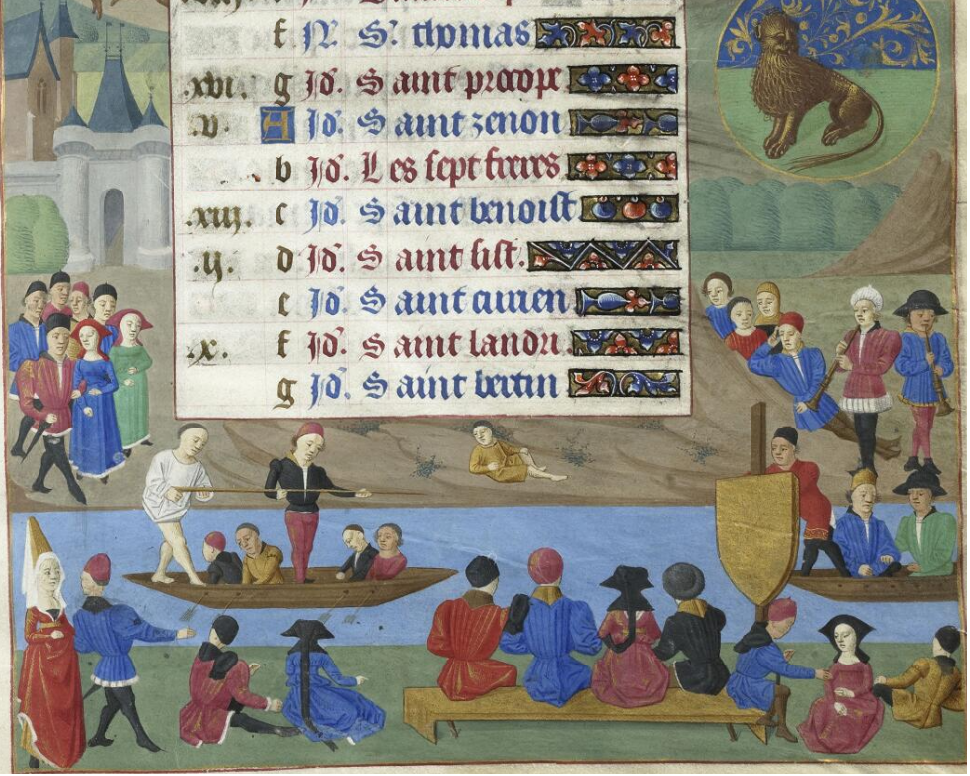 f N. S. thomas
.xvi. g Id. Saint procope
.v. A Id. Saint zenon
b Id. Les sept freres
.xiii. c Id. Saint benoist
.ii. d Id. Saint sist.
e Id. Saint
.x. f Id. Saint landri.
g Id. Saint bertin